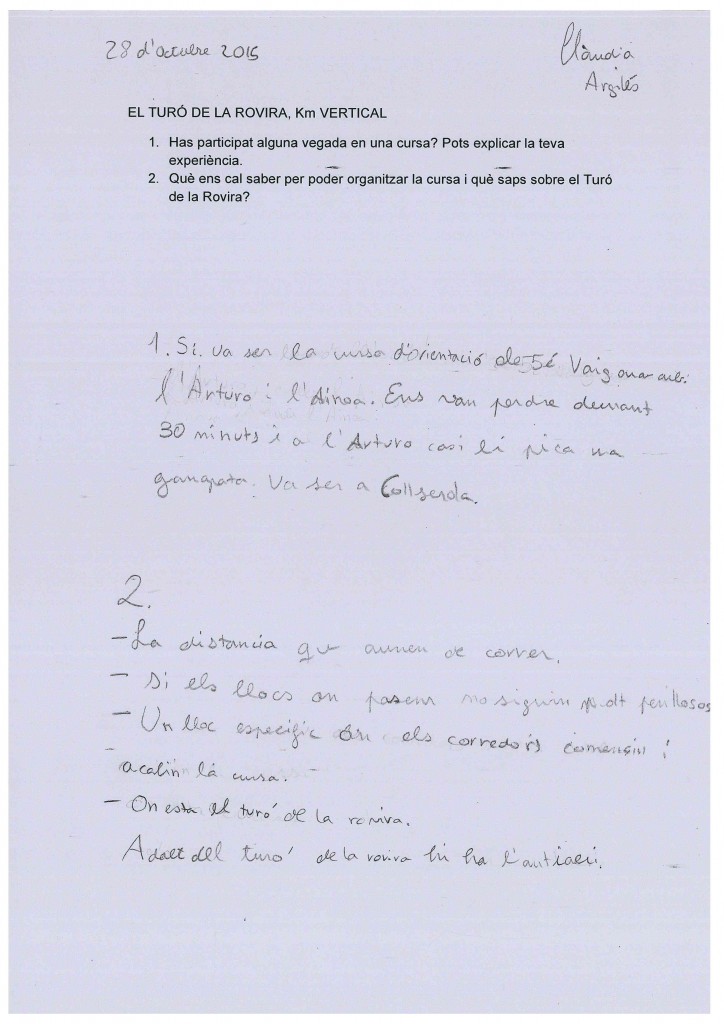 28 d'octubre 2015
Clàudia
Argilés
EL TURÓ DE LA ROVIRA, Km VERTICAL
1. Has participat alguna vegada en una cursa? Pots explicar la teva
experiència.
2. Què ens cal saber per poder organitzar la cursa i què saps sobre el Turó
de la Rovira?
1. Si. Va ser la cursa d'orientació de 5é Vaig anar amb
l'Arturo i l'Ainoa. Ens van perdre demant
30 minuts i a l'Arturo casi li pica na
ganapata. Va ser a Collserda.
2.
- La distancia que aumen de correr.
- Si els llocs on pasem no siguin molt perillosos
- Un lloc especific on els corredors comensin i
acabin la cursa.
- On esta el turó de la rovira.
A dalt del turó de la rovira hi ha l'antiaeri.